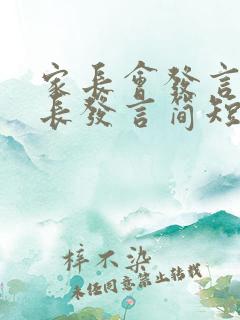 家長會發言
長發言简短
梓不染
未经同意禁止转载